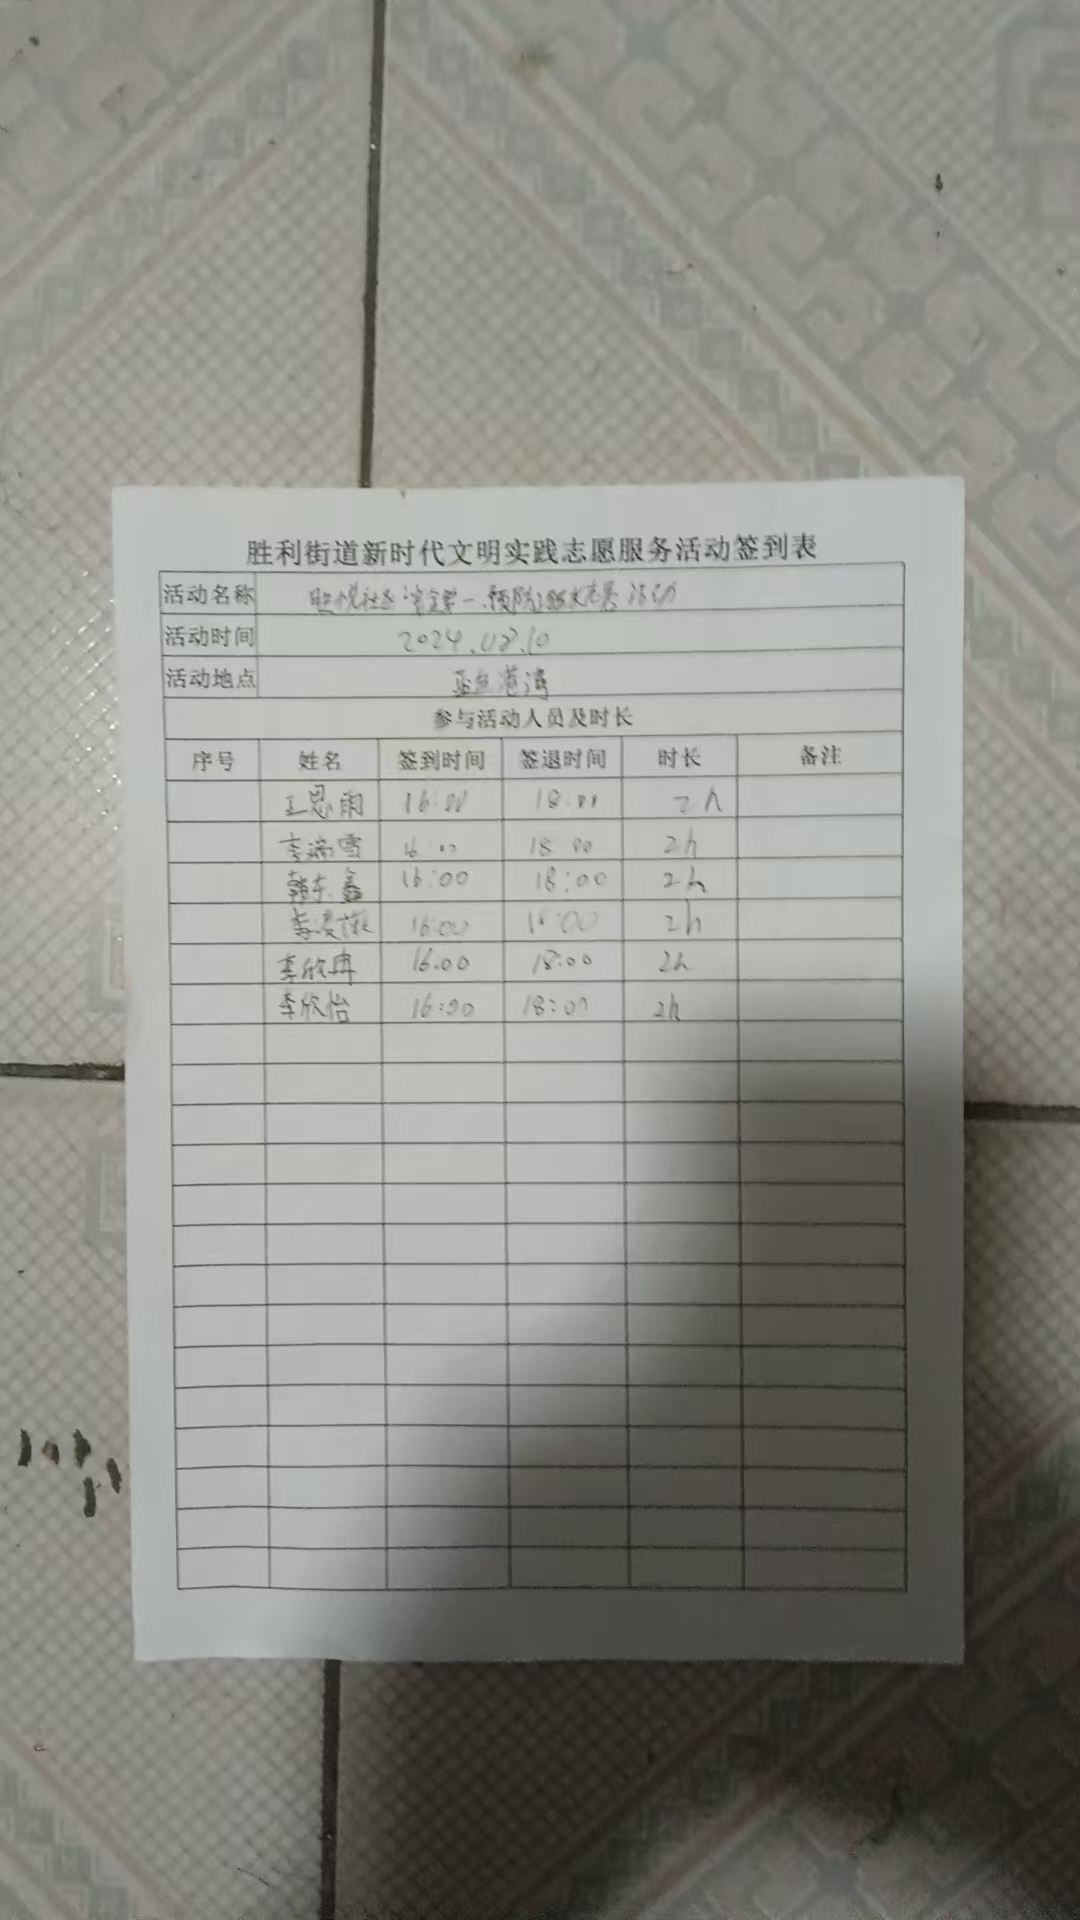 胜利街道新时代文明实践志愿服务活动签到表
活动名称 社区安全第一预防溺水志愿活动
活动时间 2024.08.10
活动地点 港湾
参与活动人员及时长
序号 姓名 签到时间 签退时间 时长 备注
王思雨 16:00 18:00 2h
李瑞雪 16:00 18:00 2h
韩东鑫 16:00 18:00 2h
李 16:00 18:00 2h
李欣冉 16:00 18:00 2h
李欣怡 16:00 18:00 2h